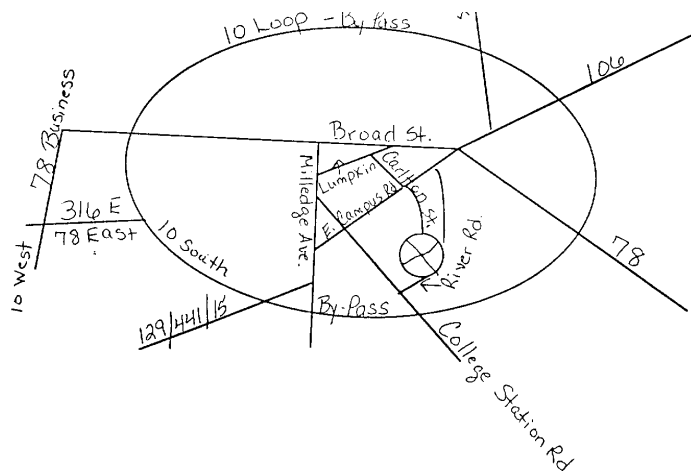 10 Loop - By Pass
106
78 Business
Broad St.
Lumpkin
Carlton St.
Milledge Ave.
E. Campus Rd
316 E
78 East
10 West
10 South
River Rd.
78
129/441/15
By-Pass
College Station Rd